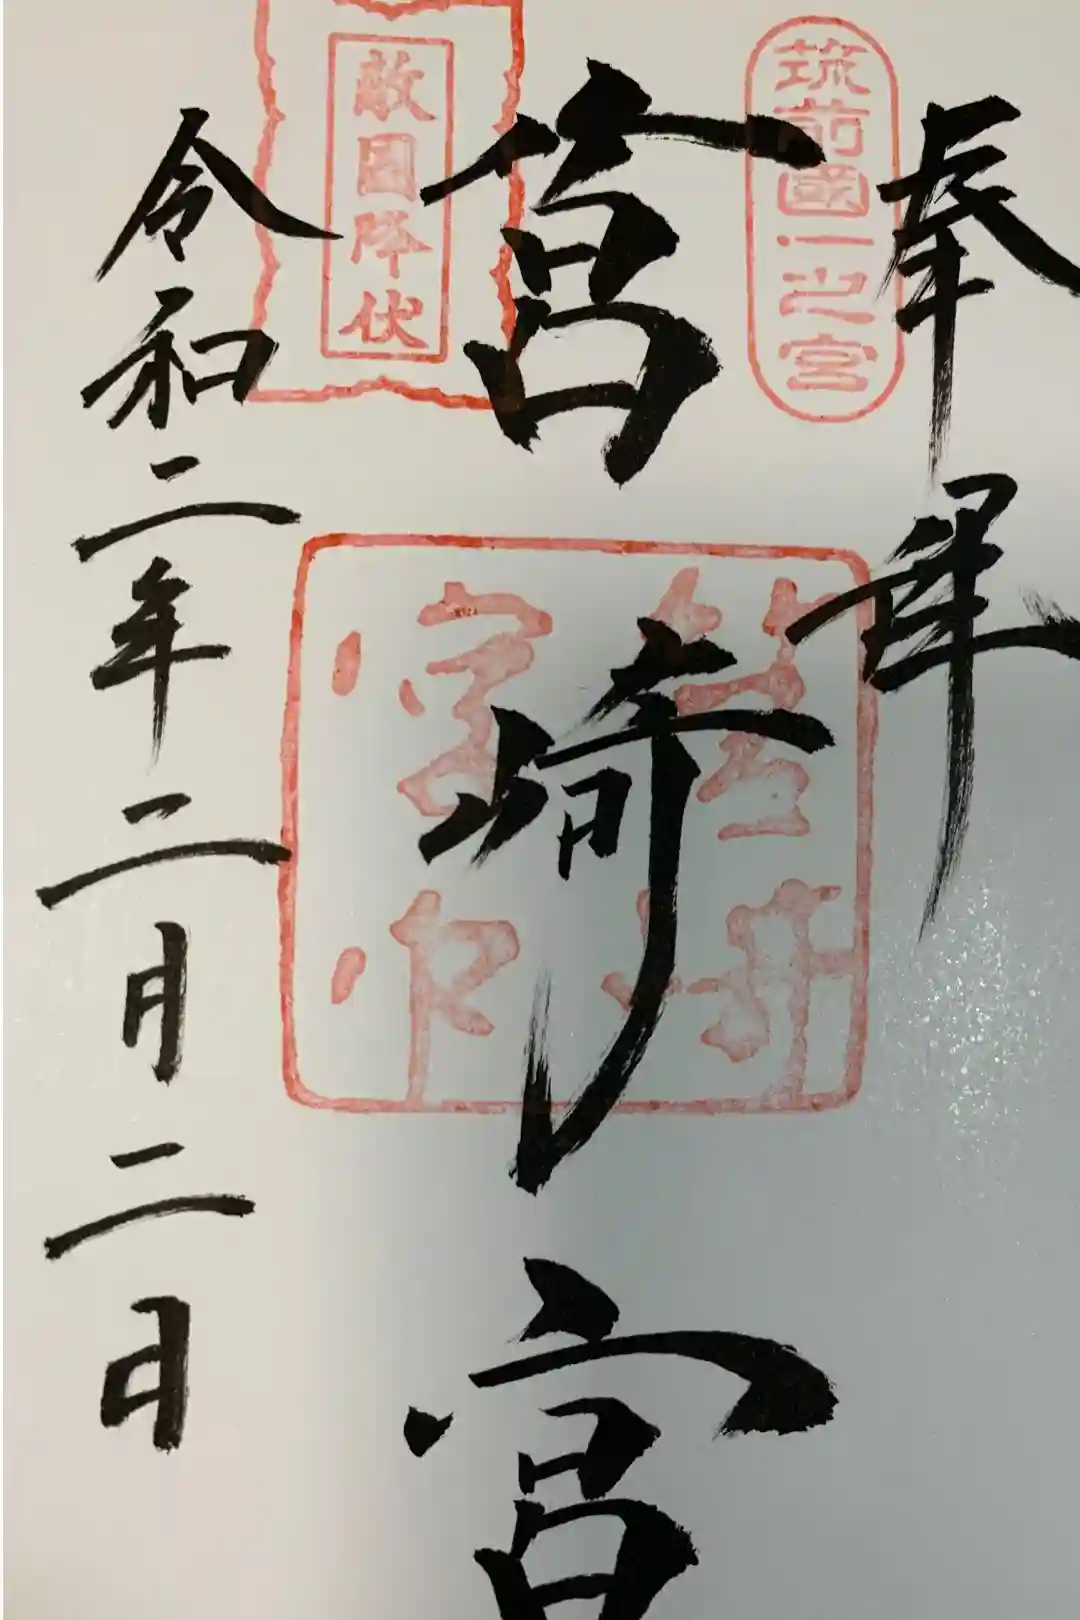 奉拝
筑前國一之宮
筥崎宮
敵國降伏
筥崎宮印
令和二年二月二日